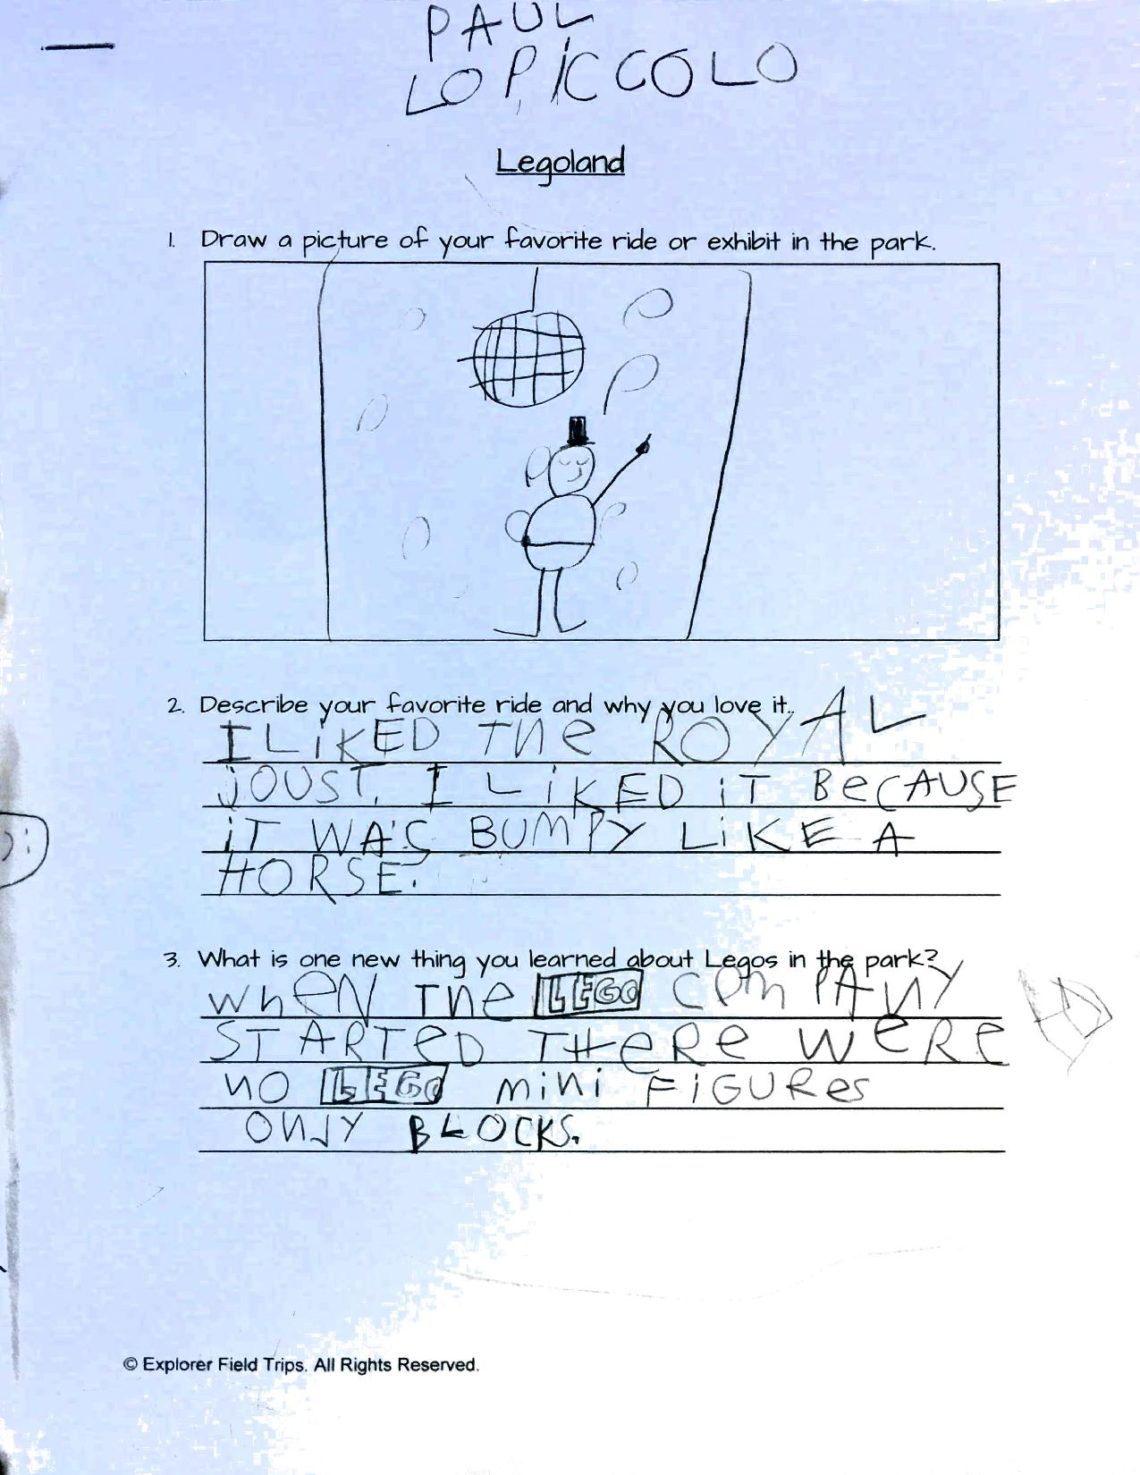 PAUL
LO PiCCOLO
Legoland
1. Draw a picture of your favorite ride or exhibit in the park.
2. Describe your favorite ride and why you love it.
I LiKED THe ROYAL
jOUST. I LiKED iT BeCAUSE
iT WAS BUMPY LiKE A
HORSE.
3. What is one new thing you learned about Legos in the park?
WhEN THe LEGO COmPANY
STARTeD THeRe WeRE
NO LEGO miNi FiGURes
ONLY BLOCKS.
© Explorer Field Trips. All Rights Reserved.